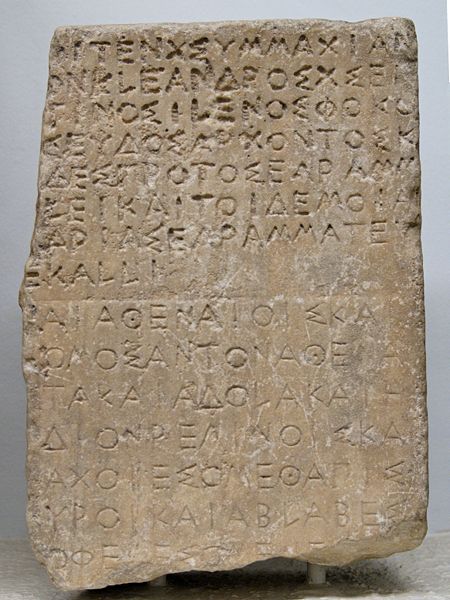 ΑΙΤΕΝΧΣΥΜΜΑΧΙΑΝ
ΟΝΚΛΕΑΝΔΡΟΣΧΣΕΝ
ΤΙΝΟΣΙΛΕΝΟΣΦΟΚΟ
ΣΕΥΔΟΣΑΡΧΟΝΤΟΣΚ
ΔΕΣΠΡΟΤΟΣΕΓΡΑΜΜ
ΛΕΙΚΑΙΤΟΙΔΕΜΟΙΑ
ΑΡΙΑΣΕΓΡΑΜΜΑΤΕΥ
ΕΚΑΛΛΙ
ΝΑΙΑΘΕΝΑΙΟΙΣΚΑΙ
ΟΜΟΣΑΝΤΟΝΑΘΕΝΑ
ΤΑΚΑΙΑΔΟΛΑΚΑΙΗ
ΙΔΙΟΝΡΕΓΙΝΟΙΣΚΑ
ΜΑΧΟΙΕΣΟΜΕΘΑΠΙΣ
ΥΡΟΙΚΑΙΑΒΛΑΒΕΣ
ΟΦΕΛΕΣΟΜΕ